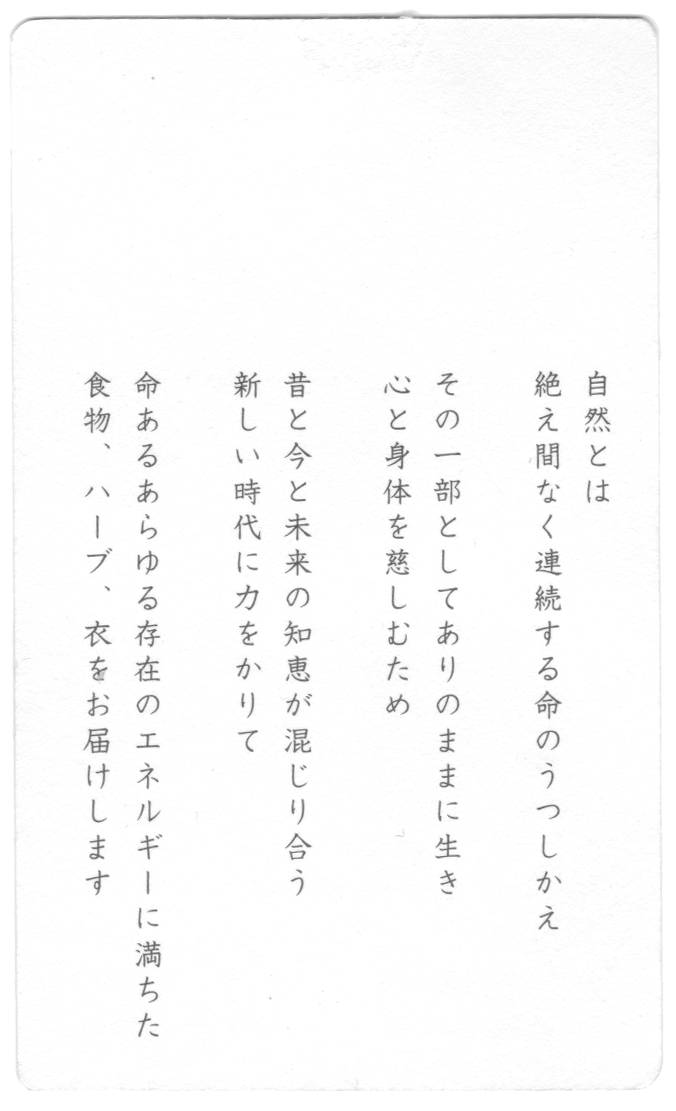 自然とは
絶え間なく連続する命のうつしかえ
その一部としてありのままに生き
心と身体を慈しむため
昔と今と未来の知恵が混じり合う
新しい時代に力をかりて
命あるあらゆる存在のエネルギーに満ちた
食物、ハーブ、衣をお届けします